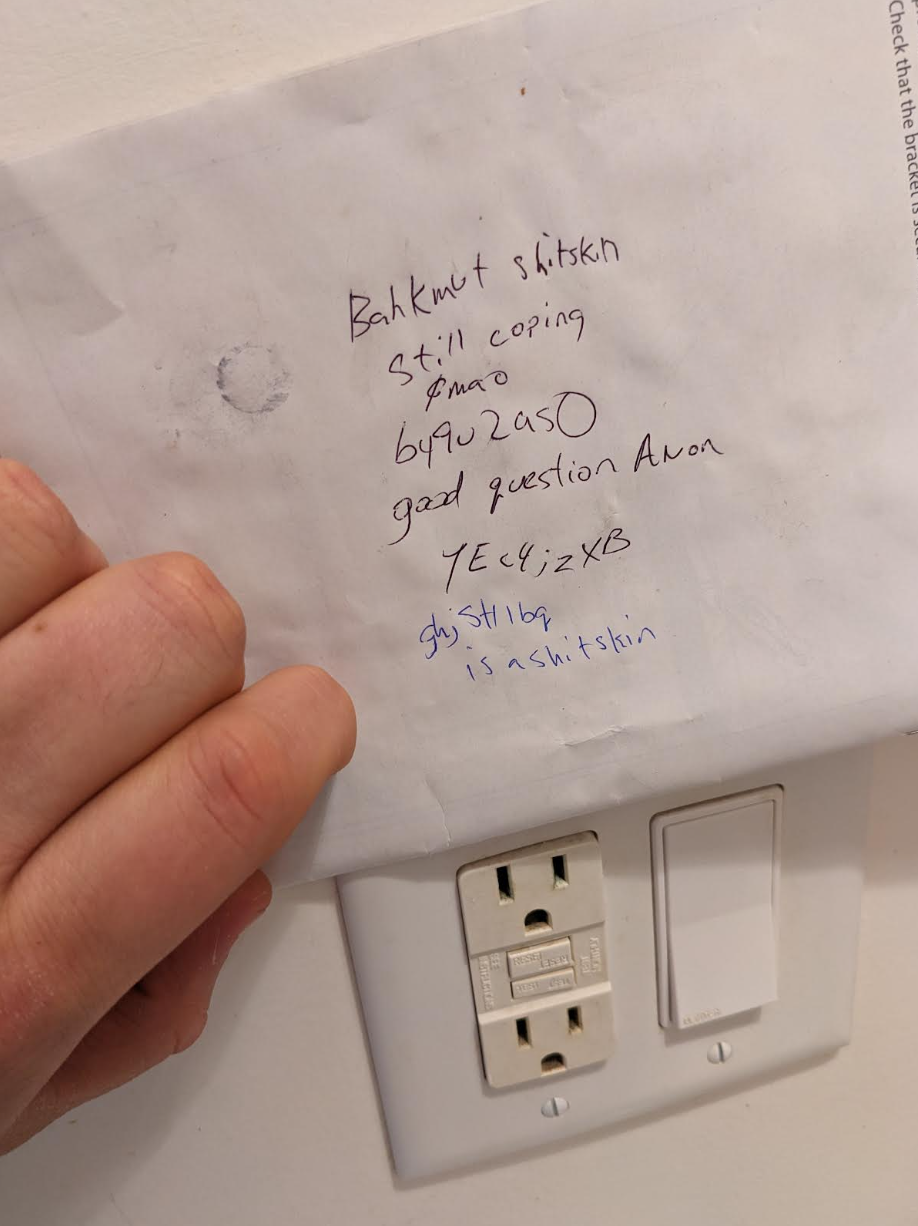 Check that the bracket is
Bahkmut shitskin
still coping
lmao
by9u2asO
good question Anon
YEc4jzXB
ghjSH1bq
is a shitskin